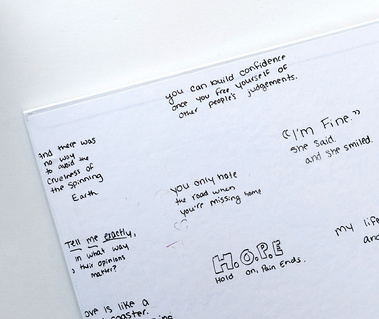 you can build confidence
once you free yourself of
other people's judgements.
and there was
no way
to avoid the
cruelness of
the spinning
Earth
"I'm Fine."
she said.
and she smiled.
you only hate
the road when
you're missing home
Tell me exactly,
in what way
their opinions
matter?
H.O.P.E
Hold on, Pain Ends.
my life
and
ove is like a